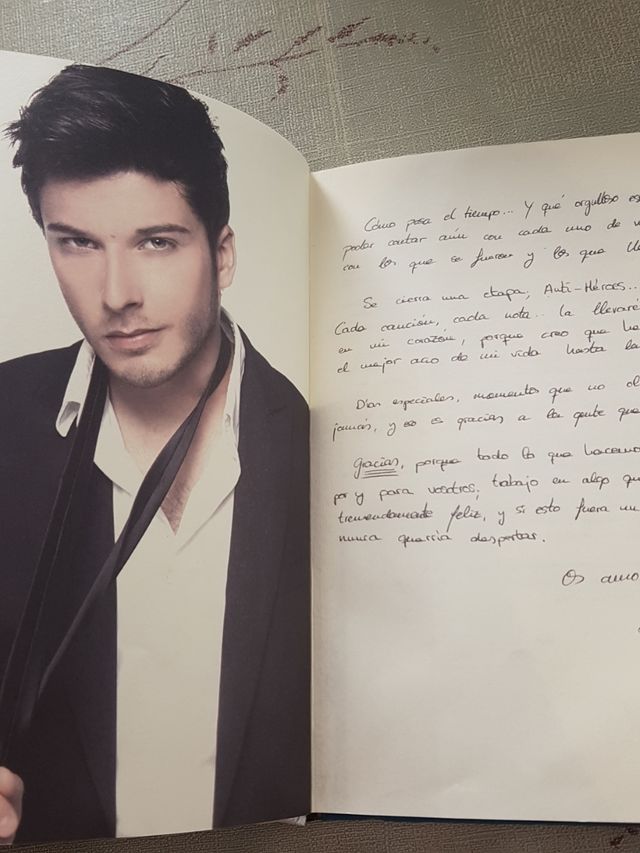 Cómo pasa el tiempo... Y qué orgulloso es
poder contar aún con cada uno de v
con los que se fueron y los que lle
Se cierra una etapa; Anti-Héroes...
Cada canción, cada nota... la llevaré
en mi corazón, porque creo que ha
el mejor año de mi vida hasta la
Días especiales, momentos que no ol
jamás, y eso es gracias a la gente que
Gracias, porque todo lo que hacemo
por y para vosotros; trabajo en algo qu
tremendamente feliz, y si esto fuera un
nunca querría despertar.
Os amo